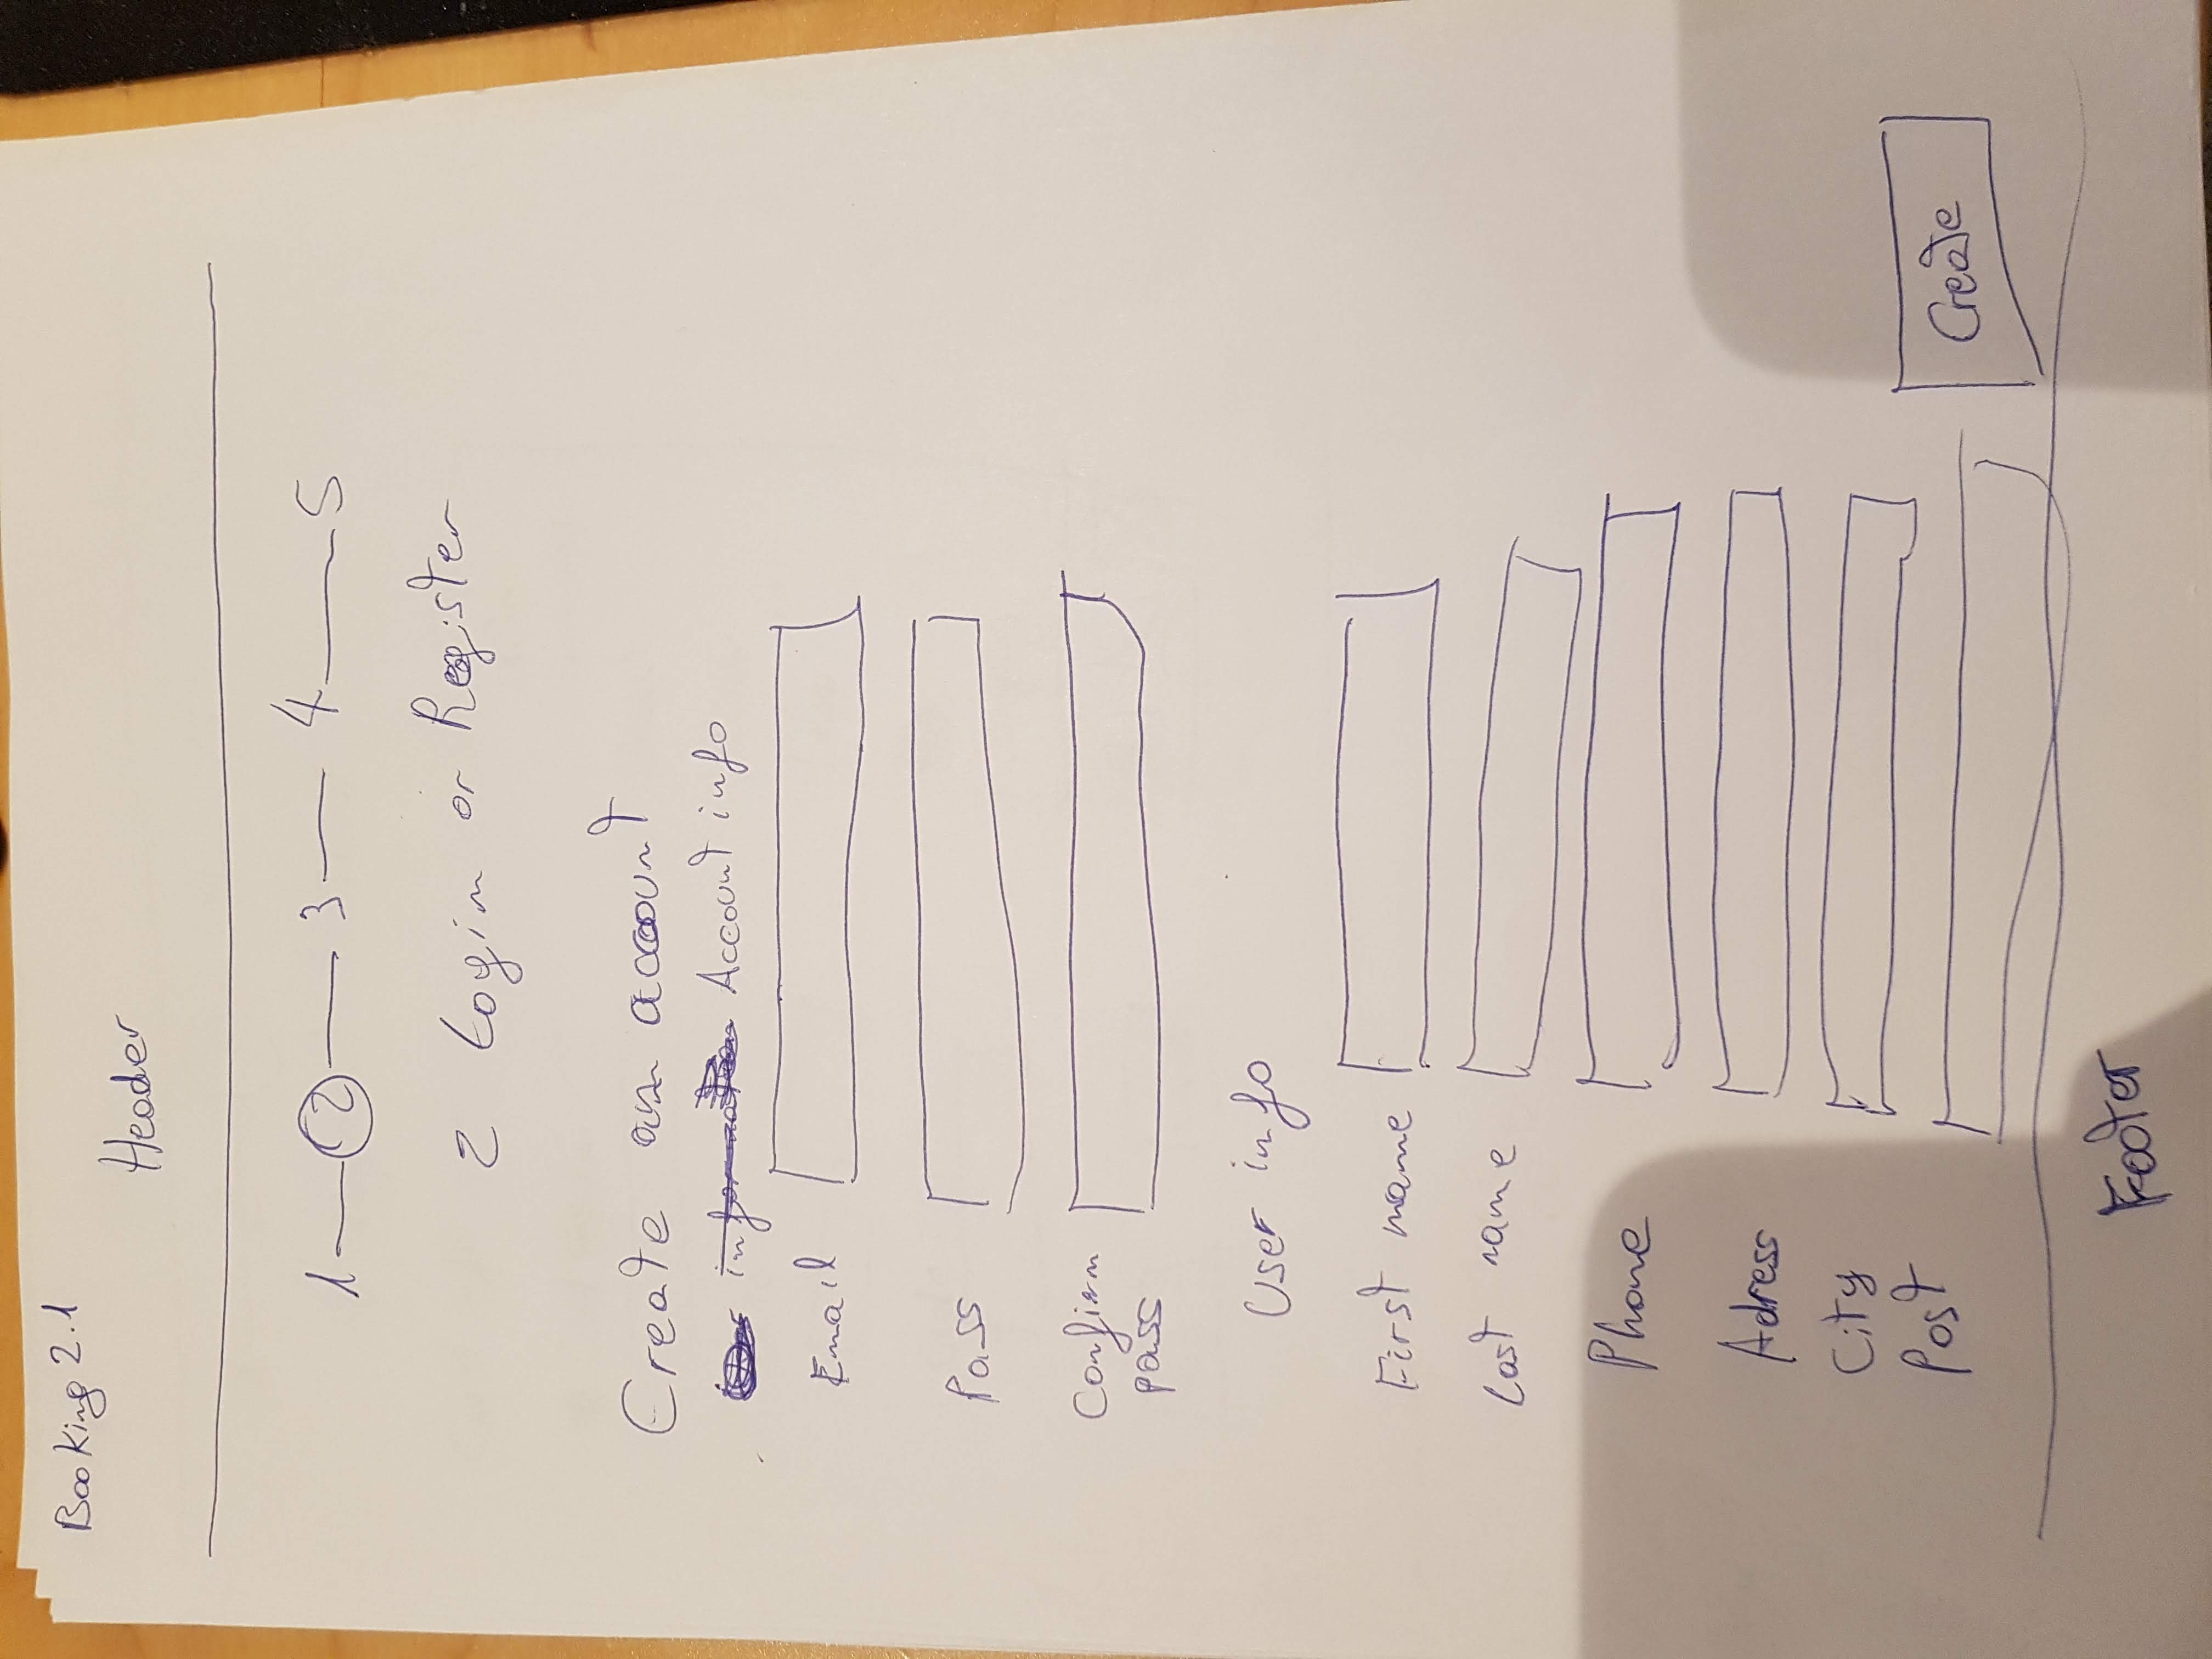 Booking 2.1
Header
1 2 3 4 5
2 Login or Register
Create an account
information Account info
Email
Pass
Confirm
pass
User info
First name
Last name
Phone
Adress
City
Post
Create
Footer